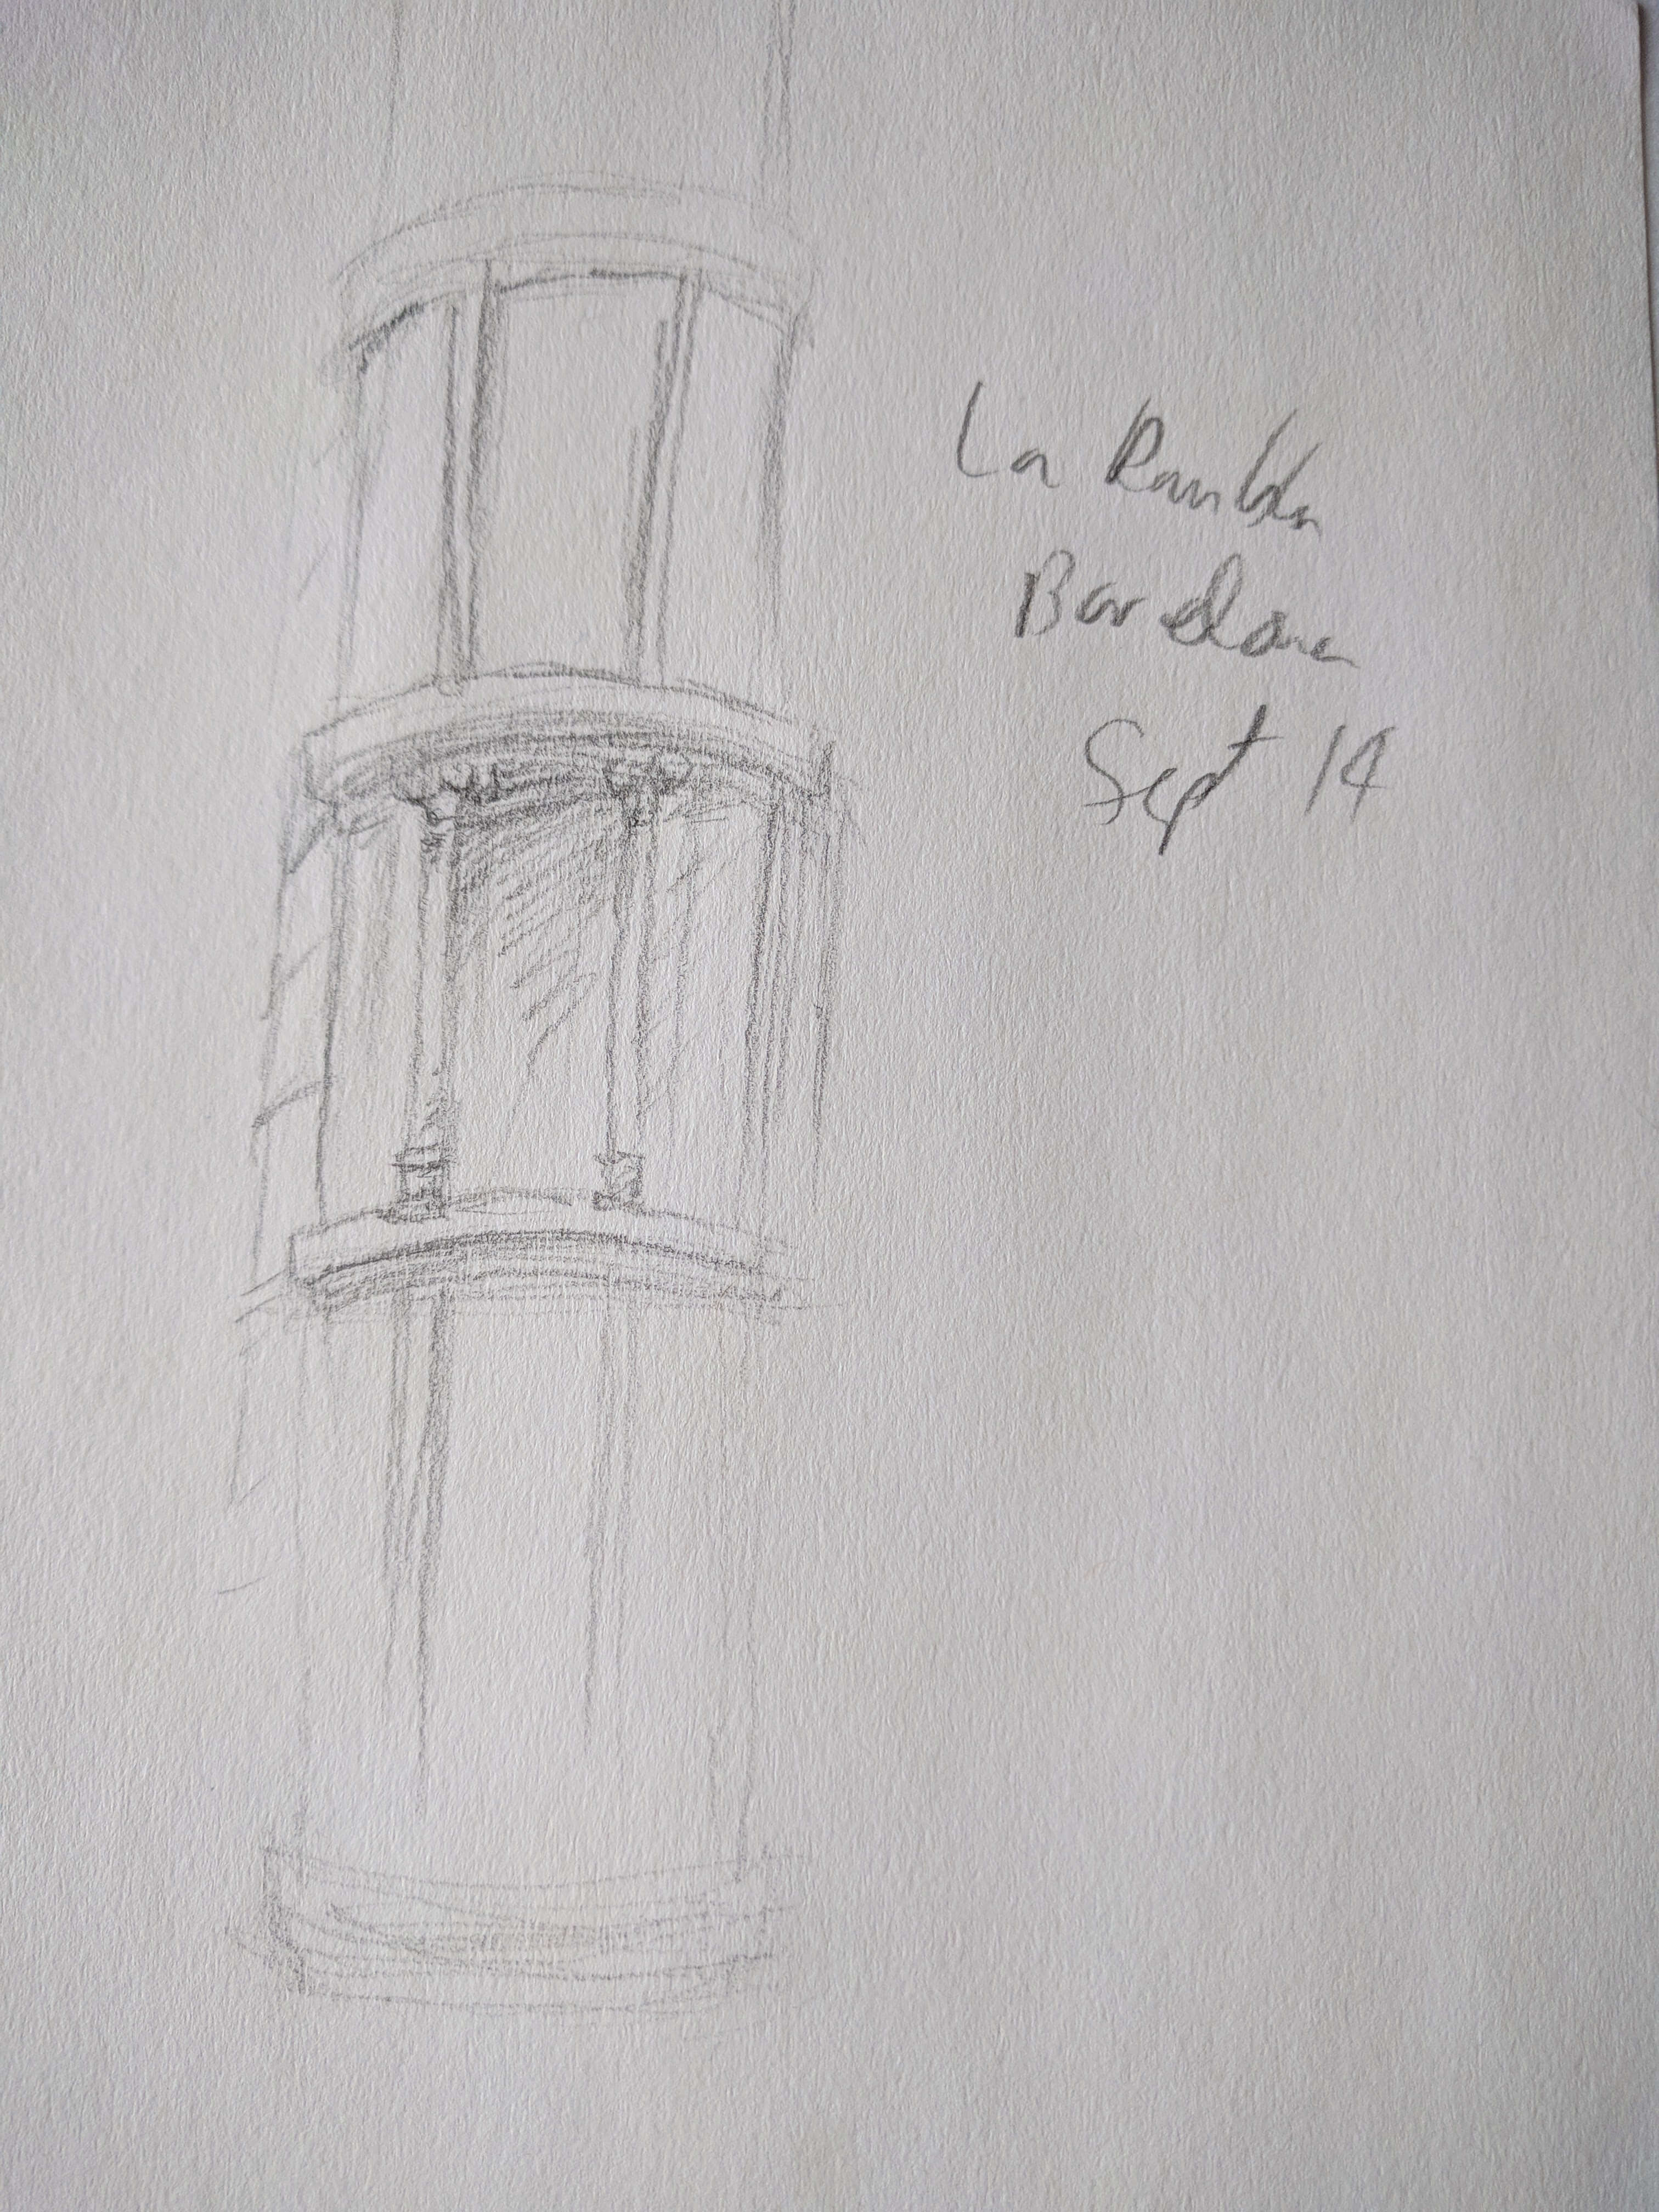 La Rambla
Barcelona
Sept 14